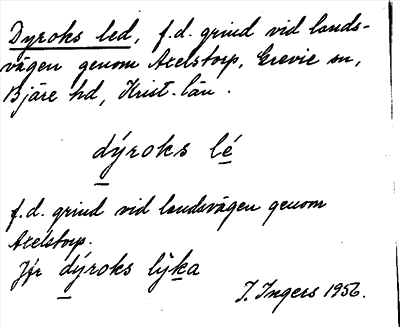 Dyroks led, f.d. grind vid lands-
vägen genom Axelstorp, Grevie sn,
Bjäre hd, Krist. län.
dýroks lé
f.d. grind vid landsvägen genom
Axelstorp.
Jfr dýroks lýka
I. Ingers 1956.